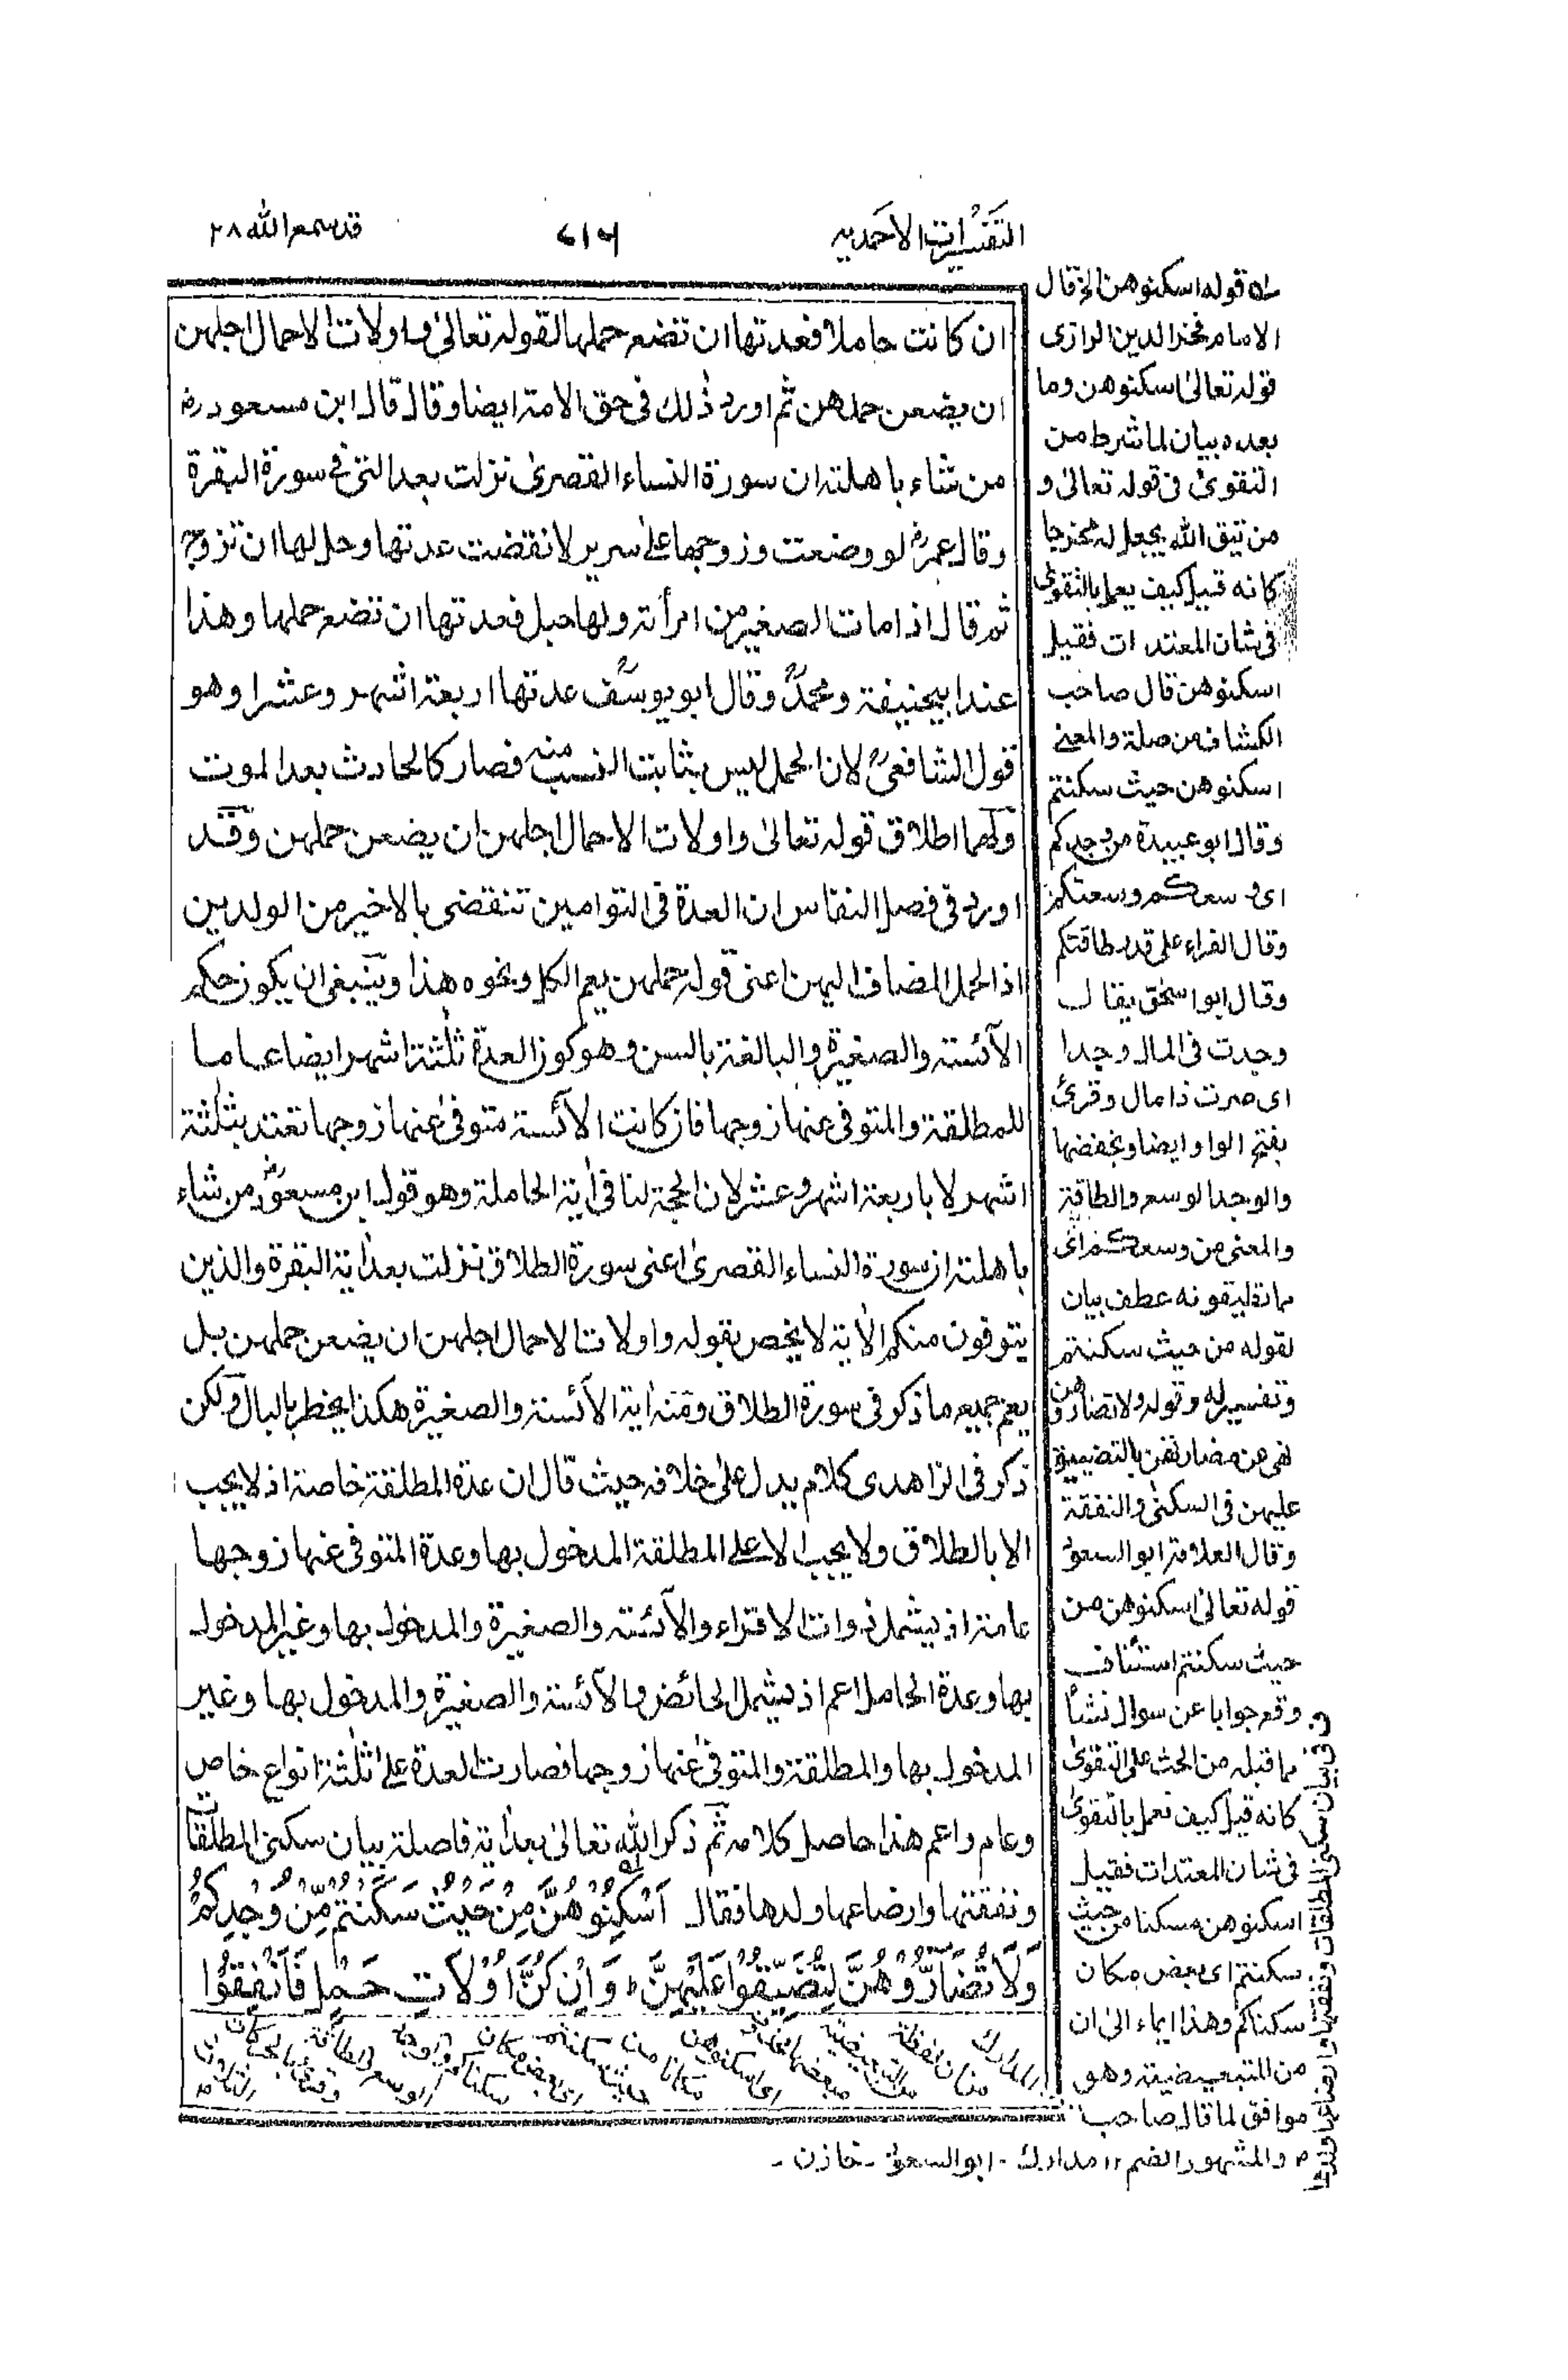 التفسيرات الاحمديه
٧١٦
قد سمع الله ٢٨
ان كانت حاملا فعدتها ان تضع حملها لقوله تعالىٰ واولات الاحمال اجلهن
ان يضعن حملهن ثم اورد ذٰلك فى حق الامة ايضا وقال قال ابن مسعود رض
من شاء باهلته ان سورة النساء القصرىٰ نزلت بعد التى فى سورة البقرة
وقال عمر رض لو وضعت وزوجها علىٰ سرير لانقضت عدتها وحل لها ان تزوج
ثم قال اذا مات الصغير من امرأته ولها حبل فعدتها ان تضع حملها وهذا
عند ابيحنيفة ومحمدؒ وقال ابو يوسفؒ عدتها اربعة اشهر وعشرا وهو
قول الشافعىؒ لان الحمل ليس بثابت النسب منه فصار كالحادث بعد الموت
ولهما اطلاق قوله تعالىٰ واولات الاحمال اجلهن ان يضعن حملهن وقد
اورد فى فصل النفاس ان العدة فى التوامين تنقضى بالاخير من الولدين
اذ الحمل المضاف اليهن اعنى قوله حملهن يعم الكل ونحوه هذا وينبغى ان يكون حكم
الآئسة والصغيرة والبالغة بالسن وهو كون العدة ثلٰثة اشهر ايضا عاما
للمطلقة والمتوفى عنها زوجها فان كانت الآئسة متوفى عنها زوجها تعتد بثلٰثة
اشهر لا باربعة اشهر وعشر لان الحجة لنا فى اٰية الحاملة وهو قول ابن مسعودؓ من شاء
باهلته ان سورة النساء القصرىٰ اعنى سورة الطلاق نزلت بعد اٰية البقرة والذين
يتوفون منكم الاٰية لا يخص بقوله واولات الاحمال اجلهن ان يضعن حملهن بل
يعم جميع ما ذكر فى سورة الطلاق ومنه اٰية الآئسة والصغيرة هكذا يخطر بالبال ولكن
ذكر فى الزاهدى كلام يدل علىٰ خلافه حيث قال ان عدة المطلقة خاصة اذ لا يجب
الا بالطلاق ولا يجب الا على المطلقة المدخول بها وعدة المتوفى عنها زوجها
عامة اذ يشمل ذوات الاقراء والآئسة والصغيرة والمدخول بها وغير المدخول
بها وعدة الحامل اعم اذ يشمل الحائض والآئسة والصغيرة والمدخول بها وغير
المدخول بها والمطلقة والمتوفى عنها زوجها فصارت العدة علىٰ ثلٰثة انواع خاص
وعام واعم هذا حاصل كلامه ثم ذكر الله تعالىٰ بعد اٰية فاصلة بيان سكنى المطلقات
ونفقتها وارضاعها ولدها فقال اَسْكِنُوْهُنَّ مِنْ حَيْثُ سَكَنْتُمْ مِّنْ وُّجْدِكُمْ
وَلَا تُضَآرُّوْهُنَّ لِتُضَيِّقُوْا عَلَيْهِنَّ ؕ وَاِنْ كُنَّ اُولَاتِ حَمْلٍ فَاَنْفِقُوْا
له قوله اسكنوهن الخ قال
الامام فخر الدين الرازى
قوله تعالىٰ اسكنوهن وما
بعده بيان لما شرط من
التقوىٰ فى قوله تعالىٰ و
من يتق الله يجعل له مخرجا
كانه قيل كيف يعمل بالتقوىٰ
فى شان المعتدات فقيل
اسكنوهن قال صاحب
الكشاف من صلة والمعنى
اسكنوهن حيث سكنتم
وقال ابو عبيدة من وجدكم
اى وسعكم وسعتكم
وقال الفراء على قدر طاقتكم
وقال ابو اسحٰق يقال
وجدت فى المال وجدا
اى صرت ذا مال وقرئ
بفتح الواو ايضا وبخفضها
والوجد الوسع والطاقة
والمعنى من وسعكم اى
مما تطيقونه عطف بيان
لقوله من حيث سكنتم
وتفسير له وقوله ولا تضاروهن
نهى عن مضارتهن بالتضييق
عليهن فى السكنىٰ والنفقة
وقال العلامة ابو السعود
قوله تعالىٰ اسكنوهن من
حيث سكنتم استئناف
وقع جوابا عن سوال نشأ
مما قبله من الحث على التقوىٰ
كانه قيل كيف نعمل بالتقوىٰ
فى شان المعتدات فقيل
اسكنوهن مسكنا من حيث
سكنتم اى بعض مكان
سكناكم وهذا ايماء الىٰ ان
من للتبعيضية وهو
موافق لما قال صاحب
المدارك
والمشهور الضم ١٢ مدارك - ابو السعود - خازن -
ف بيان سكنى المطلقات ونفقتها وارضاعها ولدها